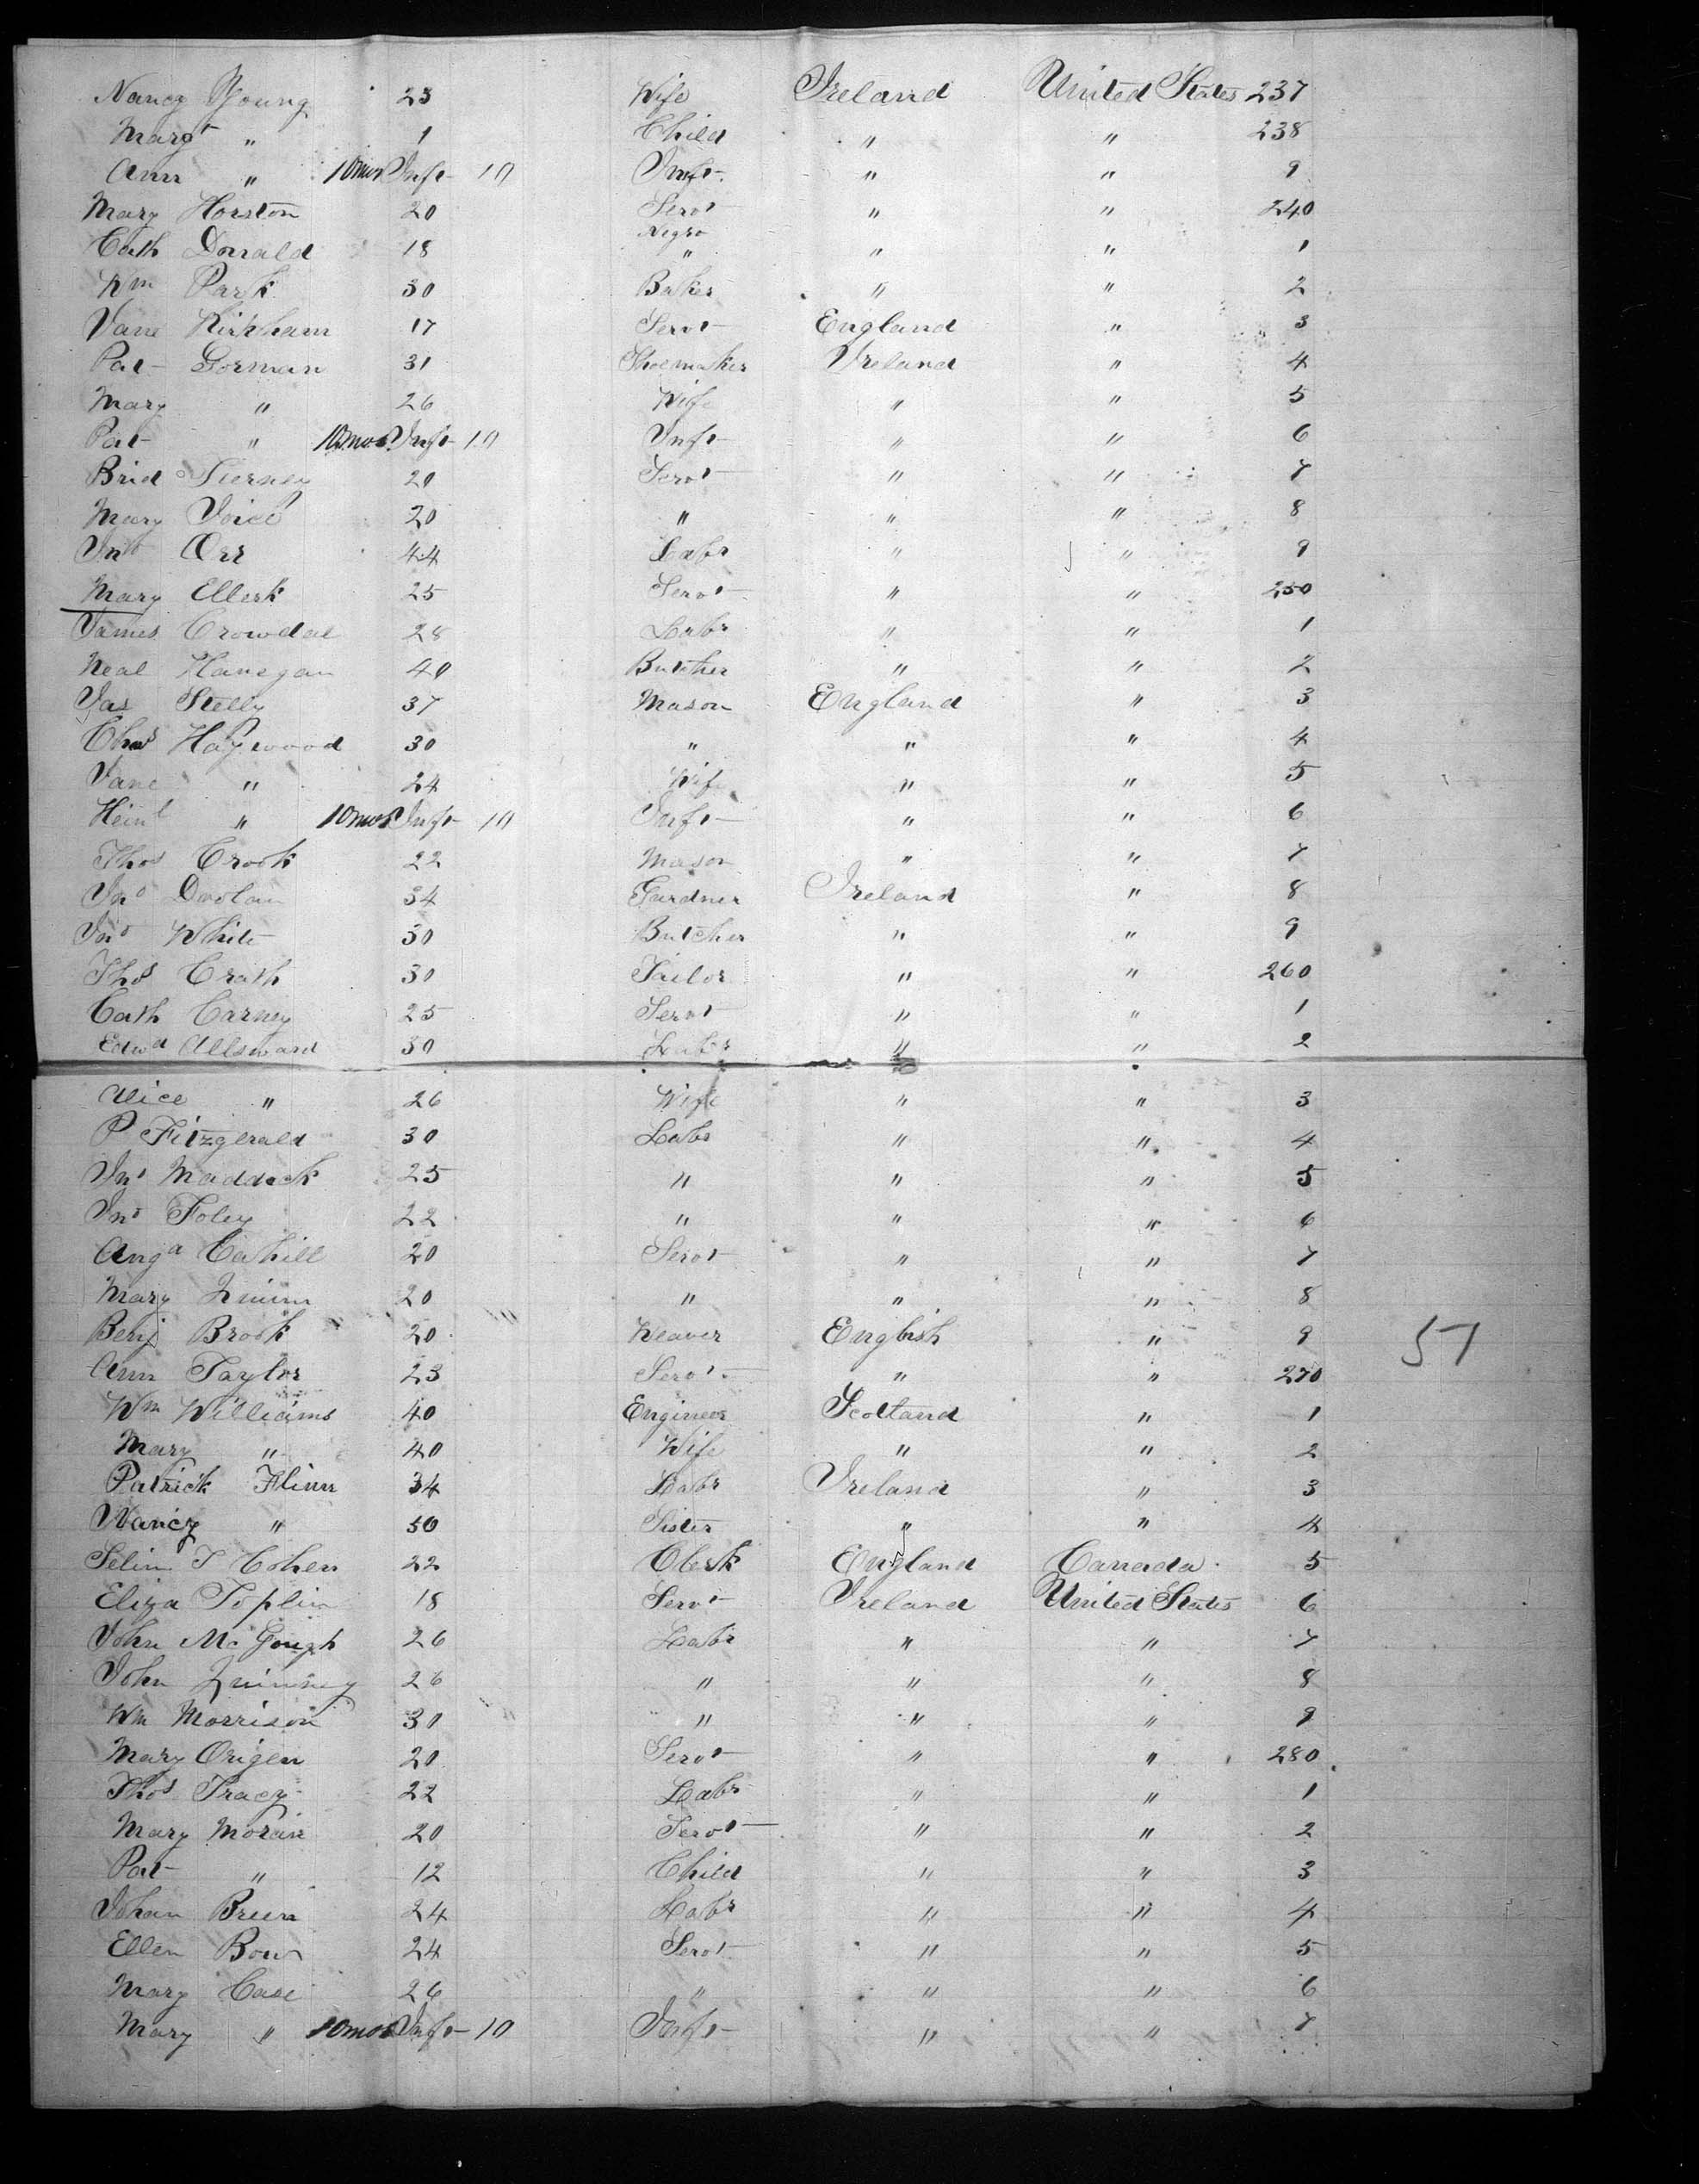 Nancy Young 23 Wife Ireland United States 237
Margt " 1 Child " " 238
Ann " 10mos Inft 10 Inft " " 9
Mary Horston 20 Servt " " 240
Cath Donald 18 Negro " " " 1
Wm Park 30 Baker " " 2
Jane Kirkham 17 Servt England " 3
Pat Gorman 31 Shoemaker Ireland " 4
Mary " 26 Wife " " 5
Pat " 10mos Inft 10 Inft " " 6
Brid Tierney 20 Servt " " 7
Mary Joice 20 " " " 8
Jno Orr 44 Labr " " 9
Mary Ellerk 25 Servt " " 250
James Crowdal 28 Labr " " 1
Neal Hanegan 40 Butcher " " 2
Jas Stelly 37 Mason England " 3
Chas Haywood 30 " " " 4
Jane " 24 Wife " " 5
" 10mos Inft 10 Inft " " 6
Thos Crook 22 Mason " " 7
Jno Doolan 34 Gardner Ireland " 8
Jno White 30 Butcher " " 9
Thos Crath 30 Tailor " " 260
Cath Carney 25 Servt " " 1
Edwd Allsward 30 Labr " " 2
Alice " 26 Wife " " 3
P Fitzgerald 30 Labr " " 4
Jno Maddock 25 " " " 5
Jno Foley 22 " " " 6
Anga Cahill 20 Servt " " 7
Mary Quinn 20 " " " 8
Benj Brook 20 Weaver English " 9
57
Ann Taylor 23 Servt " " 270
Wm Williams 40 Engineer Scotland " 1
Mary " 40 Wife " " 2
Patrick Flinn 34 Labr Ireland " 3
Nancy " 30 Sister " " 4
Selim S Cohen 22 Clerk England Canada 5
Eliza Toplin 18 Servt Ireland United States 6
John McGough 26 Labr " " 7
John Quinney 26 " " " 8
Wm Morrison 30 " " " 9
Mary Origen 20 Servt " " 280
Thos Tracy 22 Labr " " 1
Mary Moran 20 Servt " " 2
Pat " 12 Child " " 3
Johan Breen 24 Labr " " 4
Ellen Bow 24 Servt " " 5
Mary Case 26 " " " 6
Mary " 10mos Inft 10 Inft " " 7